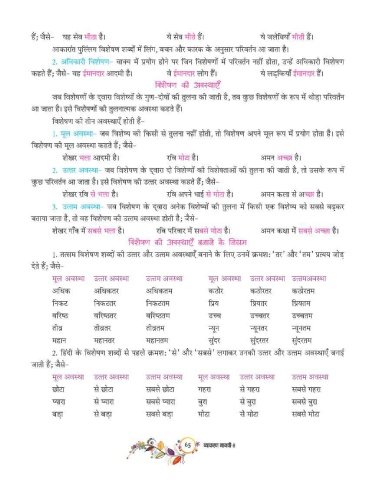 हैं; जैसे– यह सेब मीठा है। ये सेब मीठे हैं। ये जलेबियाँ मीठी हैं।
आकारांत पुल्लिंग विशेषण शब्दों में लिंग, वचन और कारक के अनुसार परिवर्तन आ जाता है।
2. अविकारी विशेषण– वाक्य में प्रयोग होने पर जिन विशेषणों में परिवर्तन नहीं होता, उन्हें अविकारी विशेषण
कहते हैं; जैसे– वह ईमानदार आदमी है। ये ईमानदार लोग हैं। ये लड़कियाँ ईमानदार हैं।
विशेषण की अवस्थाएँ
जब विशेषणों के द्वारा विशेष्यों के गुण-दोषों की तुलना की जाती है, तब कुछ विशेषणों के रूप में थोड़ा परिवर्तन
आ जाता है। इसे विशेषणों की तुलनात्मक अवस्था कहते हैं।
विशेषण की तीन अवस्थाएँ होती हैं–
1. मूल अवस्था– जब विशेष्य की किसी से तुलना नहीं होती, तो विशेषण अपने मूल रूप में प्रयोग होता है। इसे
विशेषण की मूल अवस्था कहते हैं; जैसे–
शेखर भला आदमी है। रवि मोटा है। अमन अच्छा है।
2. उत्तर अवस्था– जब विशेषण के द्वारा दो विशेष्यों की विशेषताओं की तुलना की जाती है, तो उसके रूप में
कुछ परिवर्तन आ जाता है। इसे विशेषण की उत्तर अवस्था कहते हैं; जैसे–
शेखर रवि से भला है। रवि अपने भाई से मोटा है। अमन कला से अच्छा है।
3. उत्तम अवस्था– जब विशेषण के द्वारा अनेक विशेष्यों की तुलना में किसी एक विशेष्य को सबसे बढ़कर
बताया जाता है, तो वह विशेषण की उत्तम अवस्था होती है; जैसे–
शेखर गाँव में सबसे भला है। रवि परिवार में सबसे मोटा है। अमन कक्षा में सबसे अच्छा है।
विशेषण की अवस्थाएँ बनाने के नियम
1. तत्सम विशेषण शब्दों को उत्तर और उत्तम अवस्थाएँ बनाने के लिए उनमें क्रमशः 'तर' और 'तम' प्रत्यय जोड़
देते हैं; जैसे–
मूल अवस्था उत्तर अवस्था उत्तम अवस्था मूल अवस्था उत्तर अवस्था उत्तमअवस्था
अधिक अधिकतर अधिकतम कठोर कठोरतर कठोरतम
निकट निकटतर निकटतम प्रिय प्रियतर प्रियतम
वरिष्ठ वरिष्ठतर वरिष्ठतम उच्च उच्चतर उच्चतम
तीव्र तीव्रतर तीव्रतम न्यून न्यूनतर न्यूनतम
महान महानतर महानतम सुंदर सुंदरतर सुंदरतम
2. हिंदी के विशेषण शब्दों से पहले क्रमशः 'से' और 'सबसे' लगाकर उनकी उत्तर और उत्तम अवस्थाएँ बनाई
जाती हैं; जैसे–
मूल अवस्था उत्तर अवस्था उत्तम अवस्था मूल अवस्था उत्तर अवस्था उत्तम अवस्था
छोटा से छोटा सबसे छोटा गहरा से गहरा सबसे गहरा
प्यारा से प्यारा सबसे प्यारा बुरा से बुरा सबसे बुरा
बड़ा से बड़ा सबसे बड़ा मोटा से मोटा सबसे मोटा
65 व्याकरण